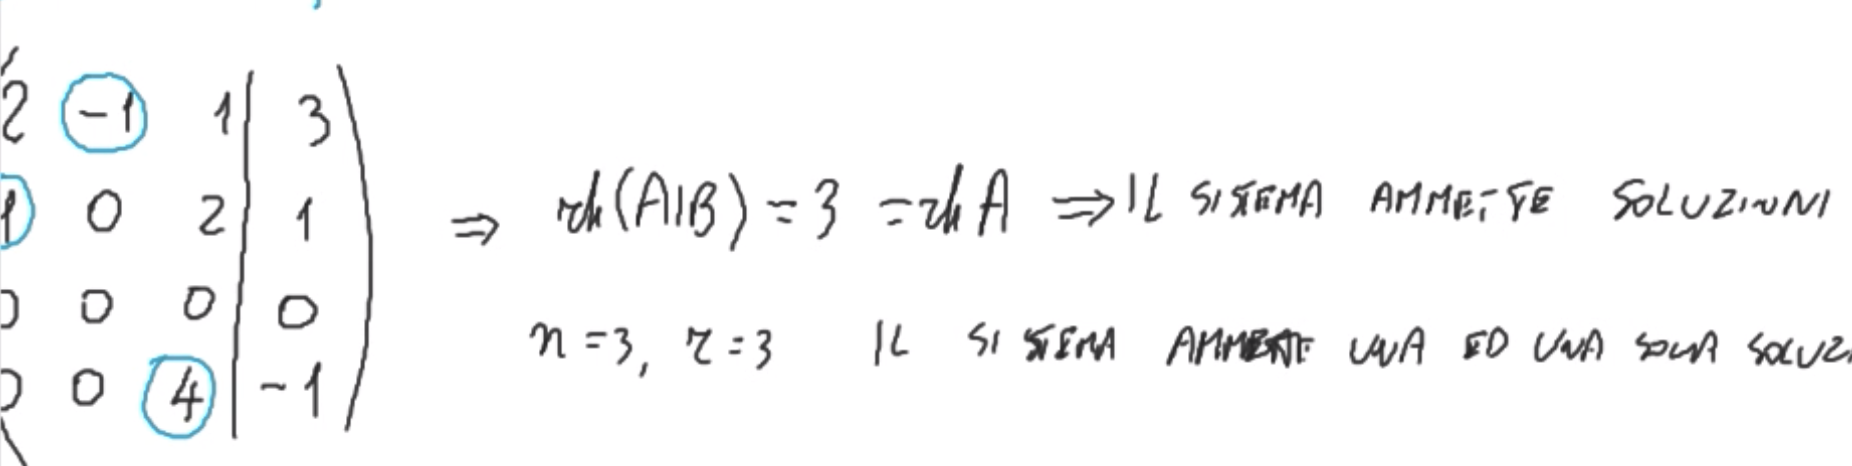 2 -1 1 | 3
1 0 2 | 1 ⇒ rk(A|B) = 3 = rk A ⇒ IL SISTEMA AMMETTE SOLUZIONI
0 0 0 | 0
n = 3, r = 3 IL SISTEMA AMMETTE UNA ED UNA SOLA SOLUZI
0 0 4 | -1